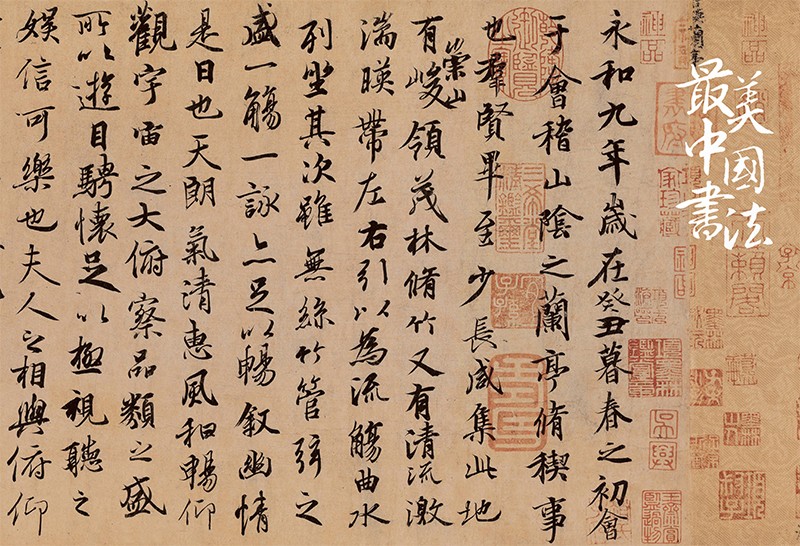 最美
中國
書法
神品
神品
永和九年歲在癸丑暮春之初會
于會稽山陰之蘭亭脩稧事
也羣賢畢至少長咸集此地
有崇山峻領茂林脩竹又有清流激
湍暎帶左右引以為流觴曲水
列坐其次雖無絲竹管弦之
盛一觴一詠亦足以暢敘幽情
是日也天朗氣清惠風和暢仰
觀宇宙之大俯察品類之盛
所以遊目騁懷足以極視聽之
娛信可樂也夫人之相與俯仰